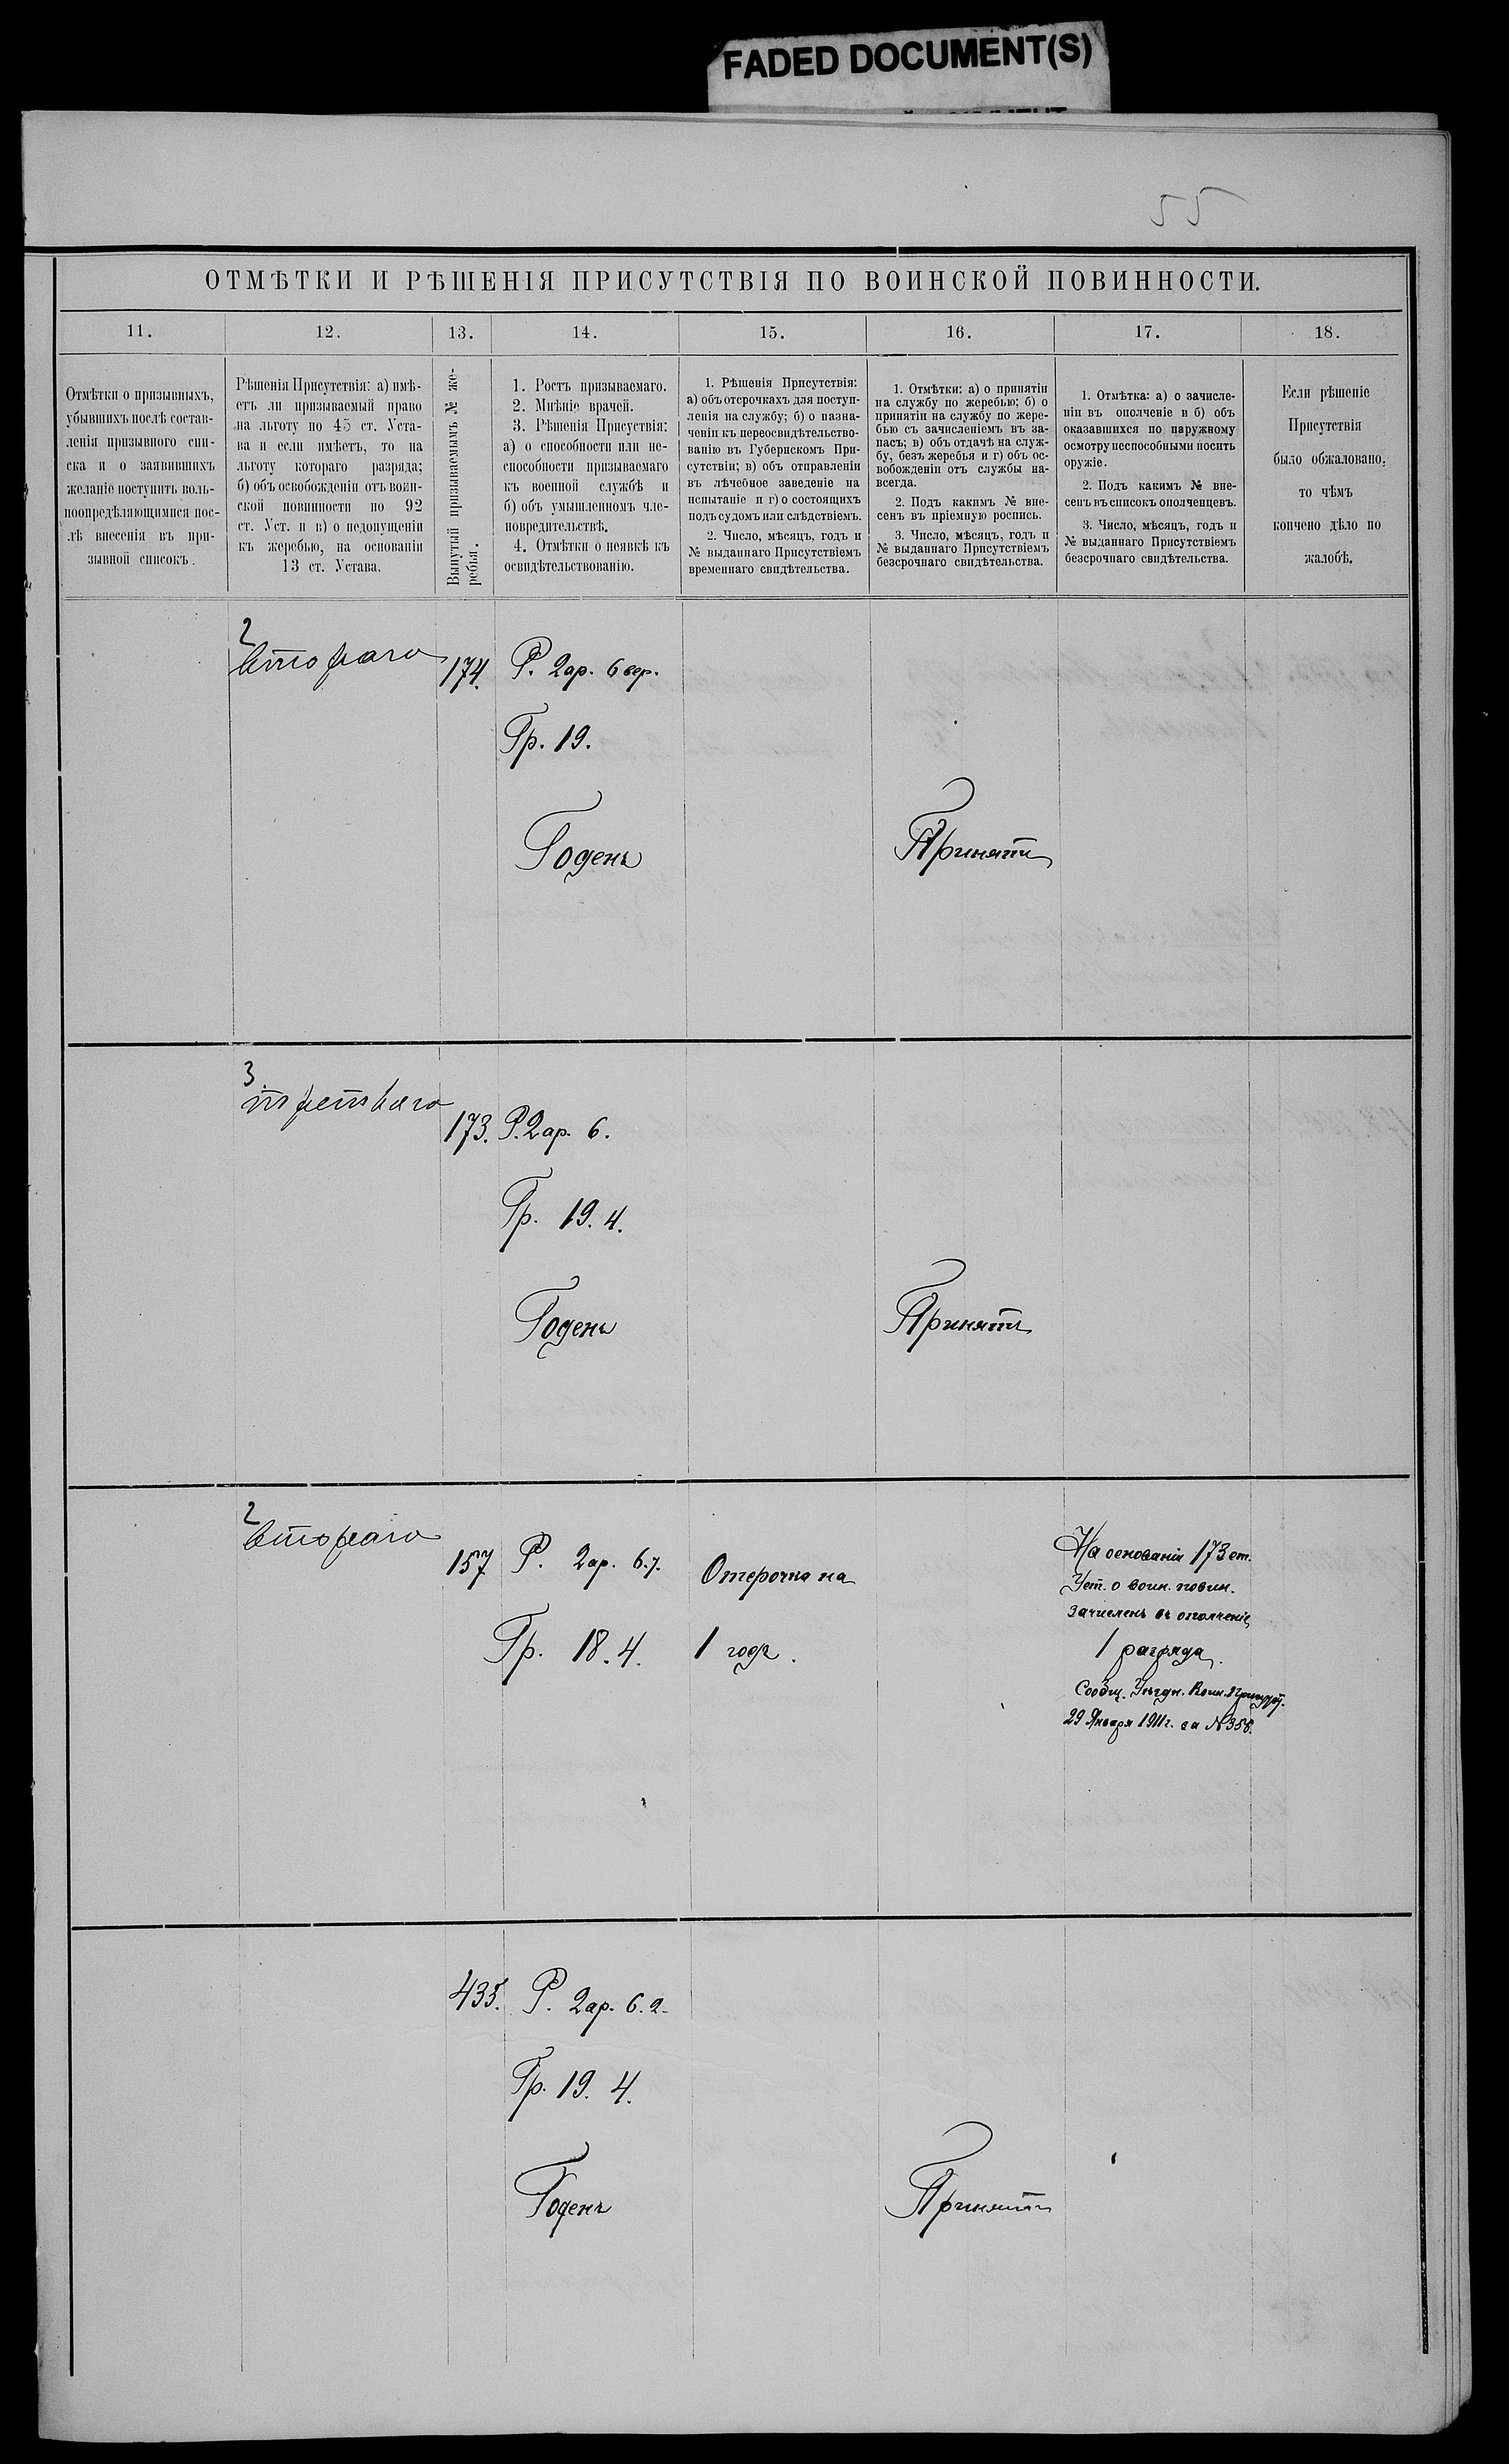 FADED DOCUMENT(S)
55
ОТМѢТКИ И РѢШЕНІЯ ПРИСУТСТВІЯ ПО ВОИНСКОЙ ПОВИННОСТИ.
11.
12.
13.
14.
15.
16.
17.
18.
Отмѣтки о призывныхъ,
убывшихъ послѣ состав-
ленія призывного спи-
ска и о заявившихъ
желаніе поступить воль-
ноопредѣляющимися пос-
лѣ внесенія въ при-
зывной списокъ.
Рѣшенія Присутствія: а) имѣ-
етъ ли призываемый право
на льготу по 45 ст. Уста-
ва и если имѣетъ, то на
льготу котораго разряда;
б) объ освобожденіи отъ воин-
ской повинности по 92
ст. Уст. и в) о недопущеніи
къ жеребью, на основаніи
13 ст. Устава.
Вынутый призываемымъ № же-
ребья.
1. Ростъ призываемаго.
2. Мнѣніе врачей.
3. Рѣшенія Присуствія:
а) о способности или не-
способности призываемаго
къ военной службѣ и
б) объ умышленномъ чле-
новредительствѣ.
4. Отмѣтки о неявкѣ къ
освидѣтельствованію.
1. Рѣшенія Присутствія:
а) объ отсрочкахъ для поступ-
ленія на службу; б) о назна-
ченіи къ переосвидѣтельство-
ванію въ Губернскомъ При-
сутствіи; в) объ отправленіи
въ лѣчебное заведеніе на
испытаніе и г) о состоящихъ
подъ судомъ или слѣдствіемъ.
2. Число, мѣсяцъ, годъ и
№ выданнаго Присутствіемъ
временнаго свидѣтельства.
1. Отмѣтки: а) о принятіи
на службу по жеребью; б) о
принятіи на службу по жере-
бью съ зачисленіемъ въ за-
пасъ; в) объ отдачѣ на служ-
бу, безъ жеребья и г) объ ос-
вобожденіи отъ службы на-
всегда.
2. Подъ какимъ № вне-
сенъ въ пріемную роспись.
3. Число, мѣсяцъ, годъ и
№ выданнаго Присутствіемъ
безсрочнаго свидѣтельства.
1. Отмѣтка: а) о зачисле-
ніи въ ополченіе и б) объ
оказавшихся по наружному
осмотру неспособными носить
оружіе.
2. Подъ какимъ № вне-
сенъ въ списокъ ополченцевъ.
3. Число, мѣсяцъ, годъ и
№ выданнаго Присутствіемъ
безсрочнаго свидѣтельства.
Если рѣшеніе
Присутствія
было обжаловано,
то чѣмъ
кончено дѣло по
жалобѣ.
2
второго
174.
Р. 2ар. 6 вер.
Гр. 19.
Годенъ
Принятъ
3
третьяго
173.
Р. 2ар. 6.
Гр. 19. 4.
Годенъ
Принятъ
2
второго
157
Р. 2ар. 6. 7.
Гр. 18. 4.
Отсрочка на
1 годъ.
На основаніи 173 ст.
Уст. о воин. повин.
зачисленъ въ ополченіе
1 разряда.
Сообщ. Уѣздн. Воин.
29 Января 1911 г. за №
435.
Р. 2ар. 6. 2.
Гр. 19. 4.
Годенъ
Принятъ